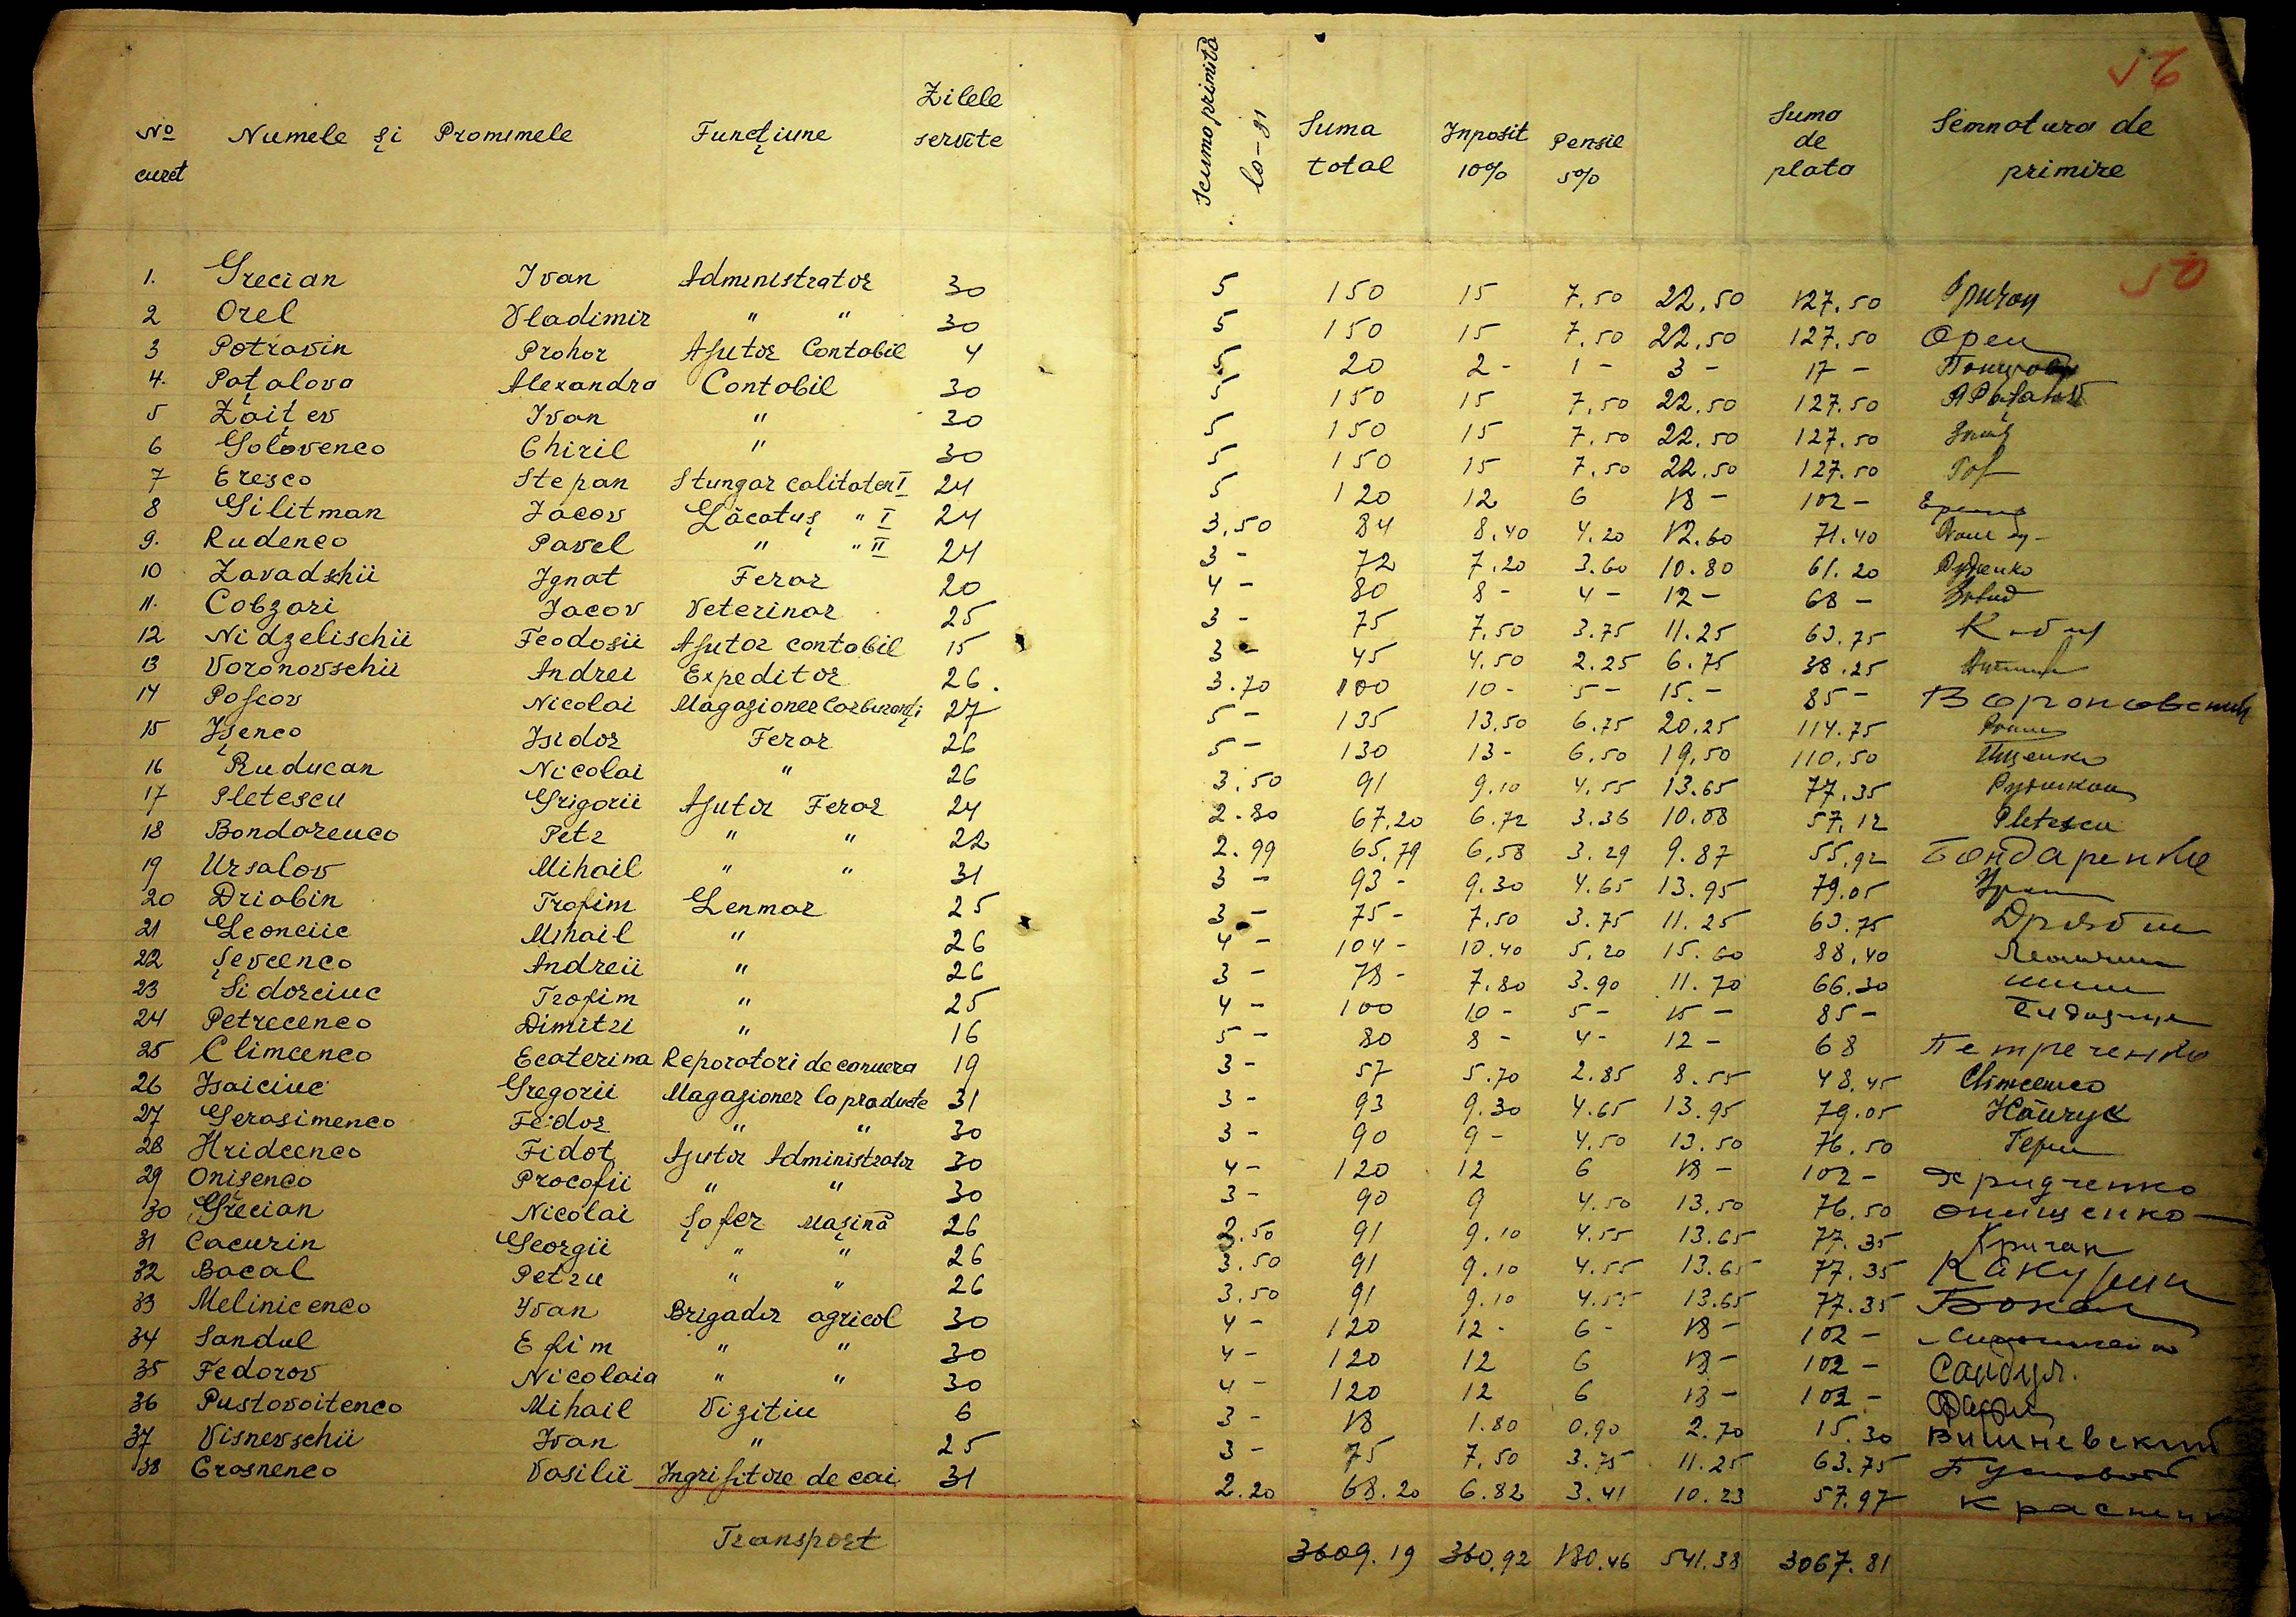 56
No curet Numele și Pronumele Funcțiune Zilele servite Scumo primită la-zi Suma total Inposit 10% Pensie 5% Suma de plata Semnatura de primire
50
1. Grecian Ivan Administrator 30 5 150 15 7.50 22.50 127.50 Гричан
2 Orel Vladimir " " 30 5 150 15 7.50 22.50 127.50 Орел
3 Potravin Prohor Ajutor Contabil 4 5 20 2- 1- 3- 17-
4. Pațalova Alexandra Contabil 30 5 150 15 7.50 22.50 127.50
5 Zaițev Ivan " 30 5 150 15 7.50 22.50 127.50
6 Golovenco Chiril " 30 5 150 15 7.50 22.50 127.50
7 Eresco Stepan Stungar calitatea I 24 5 120 12 6 18- 102-
8 Gilitman Iacov Lăcatuș " I 24 3.50 84 8.40 4.20 12.60 71.40
9. Rudenco Pavel " " II 24 3- 72 7.20 3.60 10.80 61.20 Руденко
10 Zavadschii Ignat Ferar 20 4- 80 8- 4- 12- 68-
11. Cobzari Iacov Veterinar 25 3- 75 7.50 3.75 11.25 63.75
12 Nidzelischii Feodosii Ajutor contabil 15 3- 45 4.50 2.25 6.75 38.25
13 Voronovschii Andrei Expeditor 26. 3.70 100 10- 5- 15.- 85- Вороновский
14 Pojcov Nicolai Magazioner Carburanți 27 5- 135 13.50 6.75 20.25 114.75
15 Ișenco Isidor Ferar 26 5- 130 13- 6.50 19.50 110.50 Ищенко
16 Ruducan Nicolai " 26 3.50 91 9.10 4.55 13.65 77.35
17 Pletescu Grigorii Ajutor Ferar 24 2.80 67.20 6.72 3.36 10.08 57.12 Pletescu
18 Bondarenco Petr " " 22 2.99 65.79 6,58 3.29 9.87 55,92 Бондаренко
19 Ursalov Mihail " " 31 3- 93- 9.30 4.65 13.95 79.05
20 Driabin Trofim Lenmar 25 3- 75- 7,50 3.75 11.25 63.75 Дрябин
21 Leonciic Mihail " 26 4- 104- 10.40 5.20 15.60 88,40
22 Șevcenco Andreii " 26 3- 78- 7.80 3.90 11.70 66.30
23 Sidorciuc Trofim " 25 4- 100 10- 5- 15- 85-
24 Petrecenco Dimitri " 16 5- 80 8- 4- 12- 68 Петреченко
25 Climcenco Ecaterina Reporatori de canuera 19 3- 57 5.70 2.85 8.55 48.45 Climcenco
26 Isaiciuc Gregorii Magazioner la producte 31 3- 93 9.30 4.65 13.95 79.05
27 Gerasimenco Feidor " " 30 3- 90 9- 4.50 13.50 76.50
28 Hridcenco Fidot Ajutor Administrator 30 4- 120 12 6 18- 102- Хридченко
29 Onișenco Procofii " " 30 3- 90 9 4.50 13.50 76.50 Онищенко
30 Grecian Nicolai Șofer mașină 26 3.50 91 9.10 4.55 13.65 77.35 Кричан
31 Cacurin Georgii " " 26 3.50 91 9.10 4.55 13.65 77.35 Какурин
32 Bacal Petru " " 26 3,50 91 9.10 4.55 13.65 77.35 Бокал
33 Melinicenco Ivan Brigadir agricol 30 4- 120 12- 6- 18- 102-
34 Sandul Efim " " 30 4- 120 12 6 18- 102- Сандул.
35 Fedorov Nicolaia " " 30 4- 120 12 6 18- 102-
36 Pustovoitenco Mihail Vizitiu 6 3- 18 1.80 0.90 2.70 15.30 Вишневский
37 Visnevschii Ivan " 25 3- 75 7,50 3.75 11.25 63.75
38 Crasnenco Vasilii Ingrijitore de cai 31 2.20 68.20 6.82 3.41 10.23 57.97
Transport 3609.19 360.92 180.46 541.38 3067.81